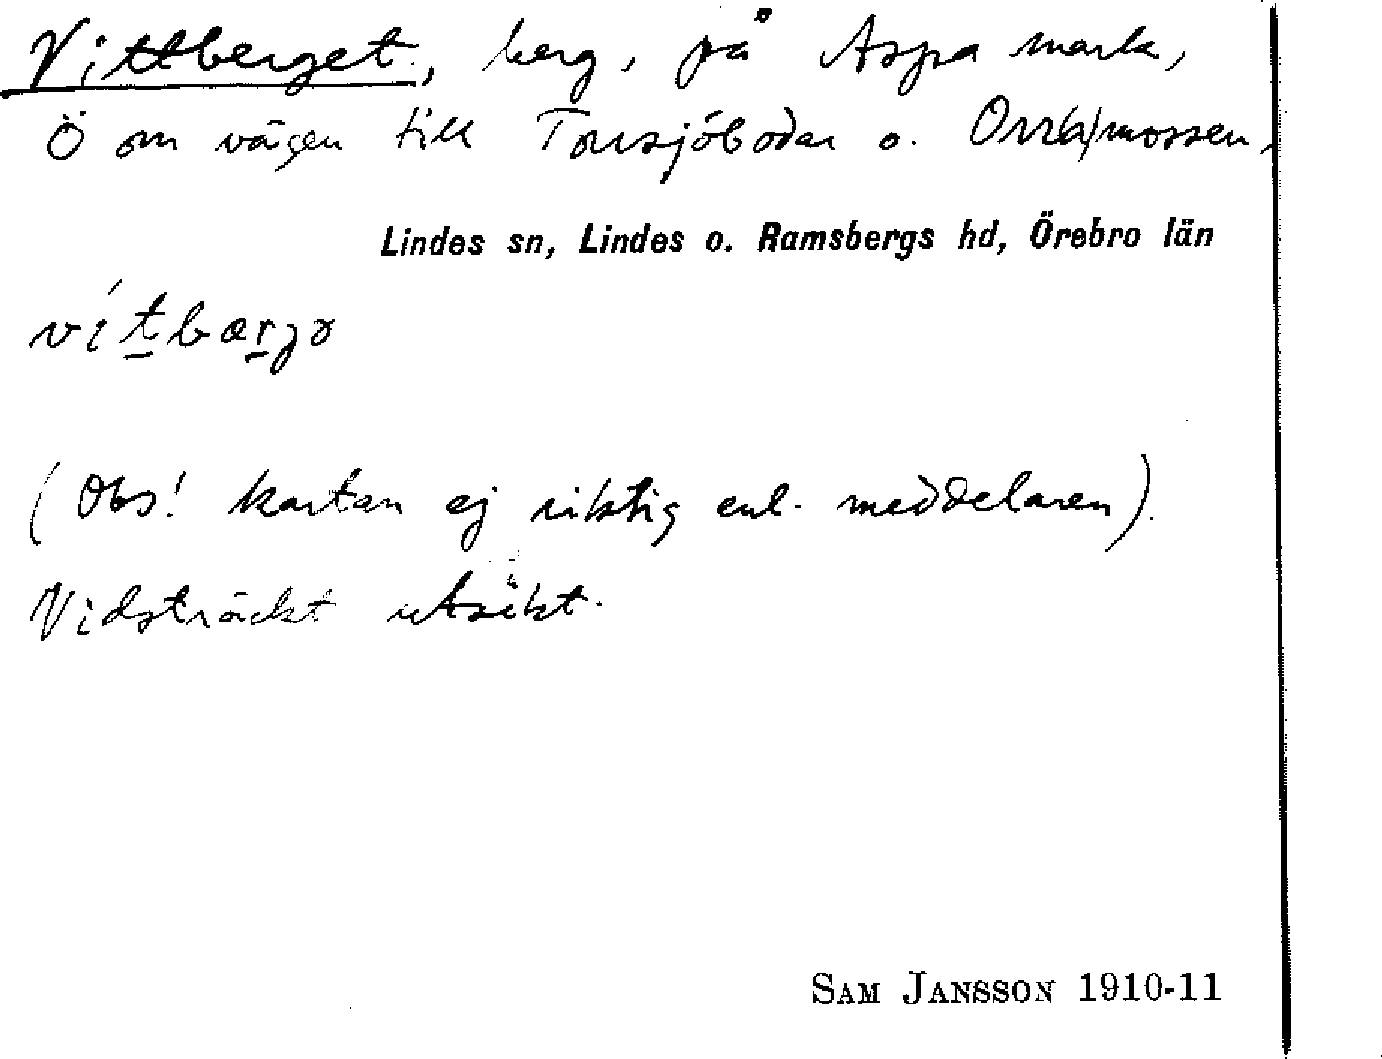 Vittberget, berg, på Aspa mark,
Ö om vägen till Torrsjöbodar o. Orr(a)mossen,
Lindes sn, Lindes o. Ramsbergs hd, Örebro län
vítbærjə
(Obs! kartan ej riktig enl. meddelaren).
Vidsträckt utsikt.
SAM JANSSON 1910-11